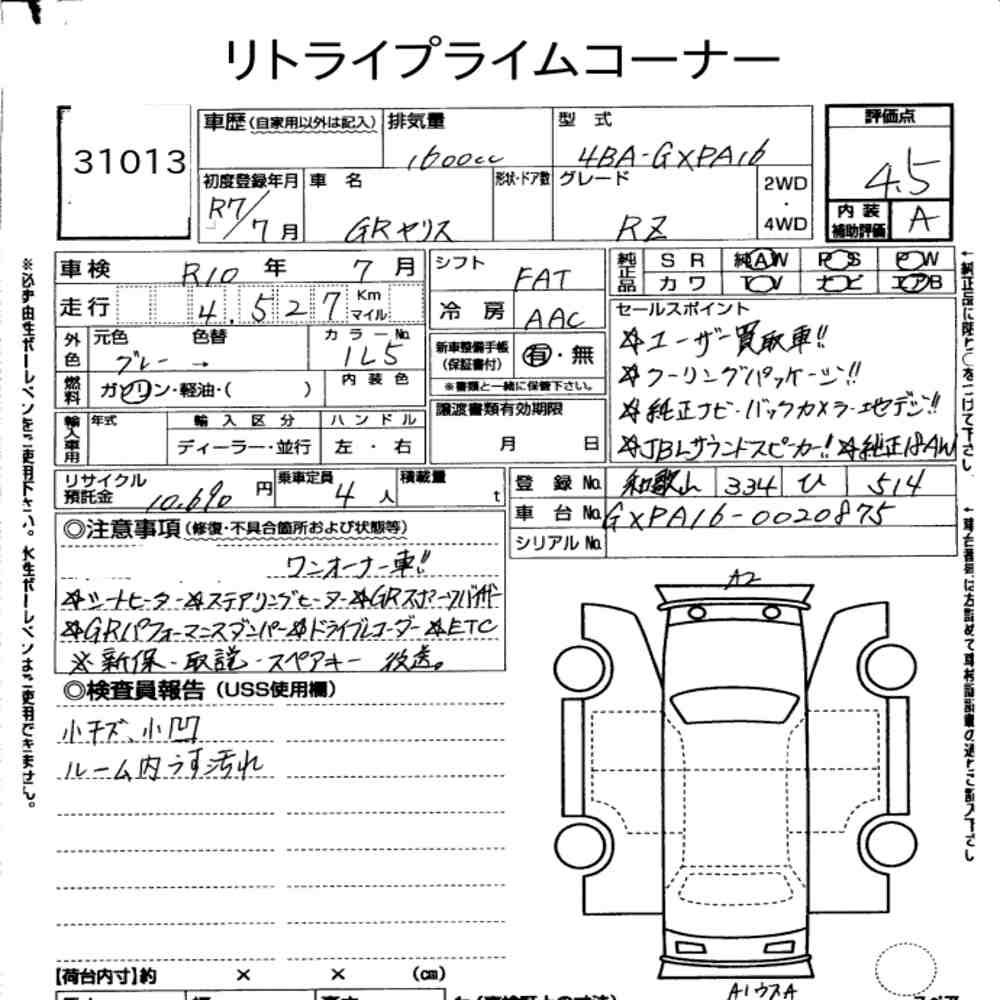 リトライプライムコーナー
31013
車歴(自家用以外は記入) 排気量 1600cc 型式 4BA-GXPA16
評価点 4.5
初度登録年月 R7/7月 車名 GRヤリス 形状・ドア数 グレード RZ 2WD・4WD
内装補助評価 A
車検 R10年 7月
走行 4.527 Km マイル
外色 元色 グレー 色替 → カラーNo. 1L5
燃料 ガソリン・軽油・( ) 内装色
輸入車用 年式 輸入区分 ディーラー・並行 ハンドル 左・右
リサイクル預託金 10,690円 乗車定員 4人 積載量 t
シフト FAT
冷房 AAC
新車整備手帳(保証書付) 有・無
※書類と一緒に保管下さい。
譲渡書類有効期限 月 日
純正品 SR 純AW PS PW
カワ TV ナビ エアB
セールスポイント
☆ユーザー買取車!!
☆クーリングパッケージ!!
☆純正ナビ・バックカメラ・地デジ!!
☆JBLサウンドスピーカー!! ☆純正18AW
登録No. 和歌山 334 ひ 514
車台No. GXPA16-0020875
シリアルNo.
◎注意事項(修復・不具合箇所および状態等)
ワンオーナー車!!
☆シートヒーター☆ステアリングヒーター☆GRスポーツバイザー
☆GRパフォーマンスダンパー☆ドライブレコーダー☆ETC
※新保・取説・スペアキー 後送。
◎検査員報告(USS使用欄)
小キズ、小凹
ルーム内うす汚れ
A2
A1ウスA
【荷台内寸】約 × × (cm)
※必ず油性ボールペンをご使用下さい。水性ボールペンはご使用できません。
←純正品に限り○をつけて下さい。